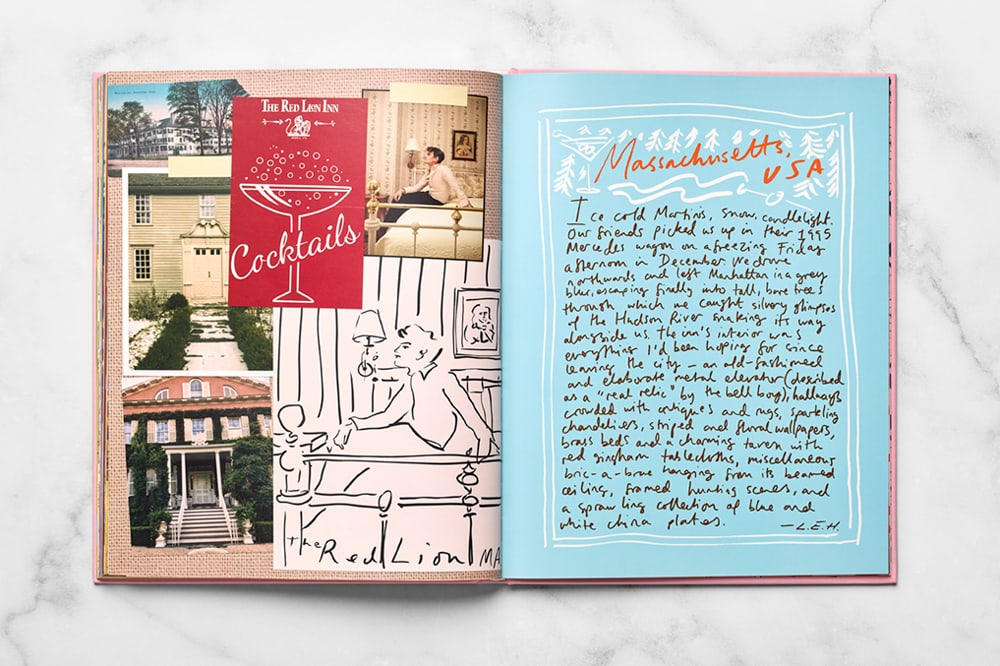 THE RED LION INN
Cocktails
The Red Lion MA
Massachusetts,
USA
Ice cold Martinis, snow, candlelight.
Our friends picked us up in their 1995
Mercedes wagon on a freezing Friday
afternoon in December. We drove
northwards and left Manhattan in a grey
blur, escaping finally into tall, bare trees
through which we caught silvery glimpses
of the Hudson River snaking its way
alongside us. The inn's interior was
everything I'd been hoping for since
leaving the city – an old-fashioned
and elaborate metal elevator (described
as a "real relic" by the bell boy), hallways
crowded with antiques and rugs, sparkling
chandeliers, striped and floral wallpapers,
brass beds and a charming tavern with
red gingham tablecloths, miscellaneous
bric-a-brac hanging from its beamed
ceiling, framed hunting scenes, and
a sprawling collection of blue and
white china plates.
—L.E.H.